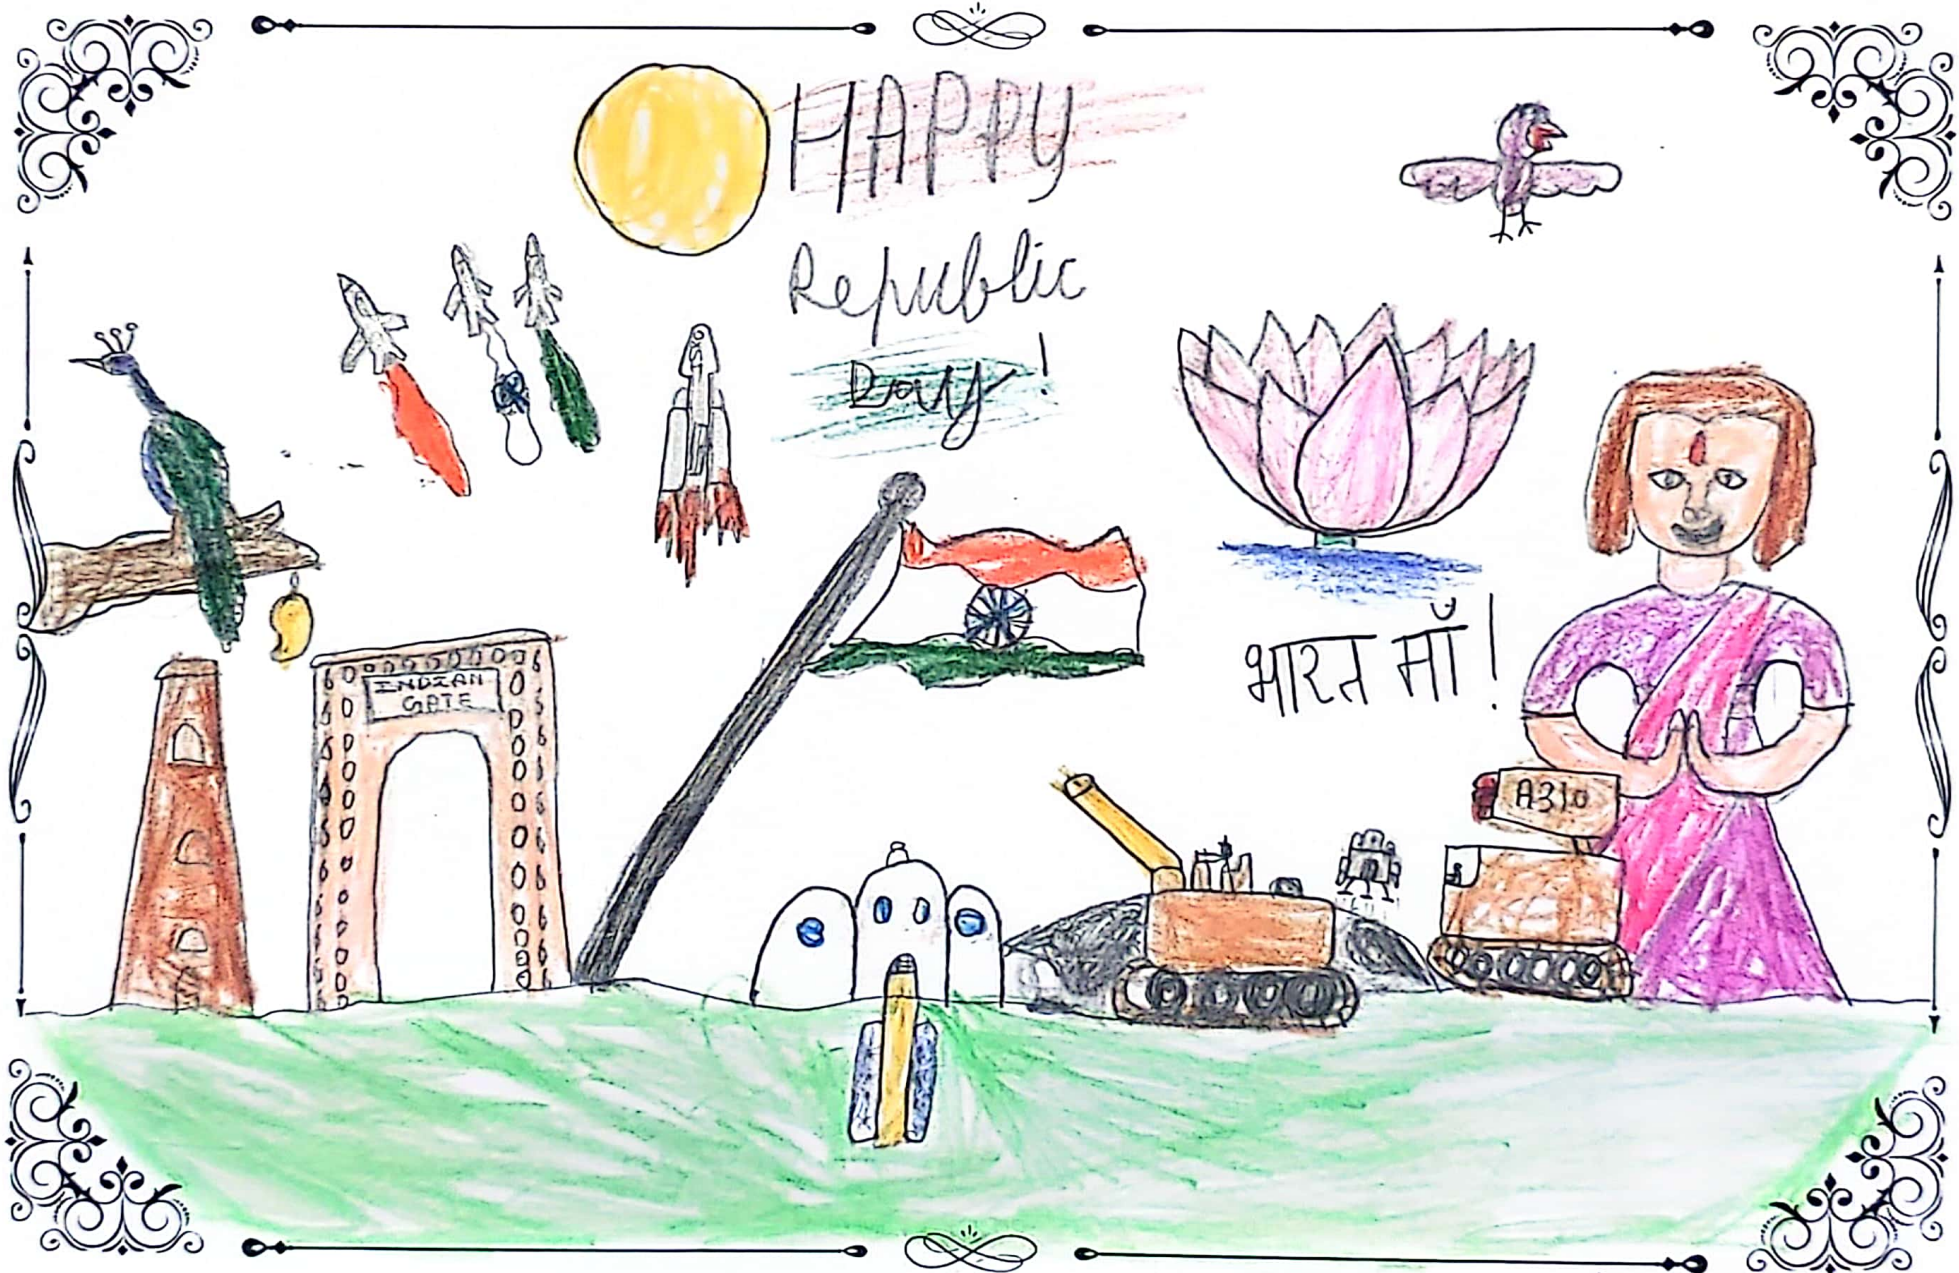 HAPPY
Republic
Day!
INDIAN
GATE
भारत माँ!
A310